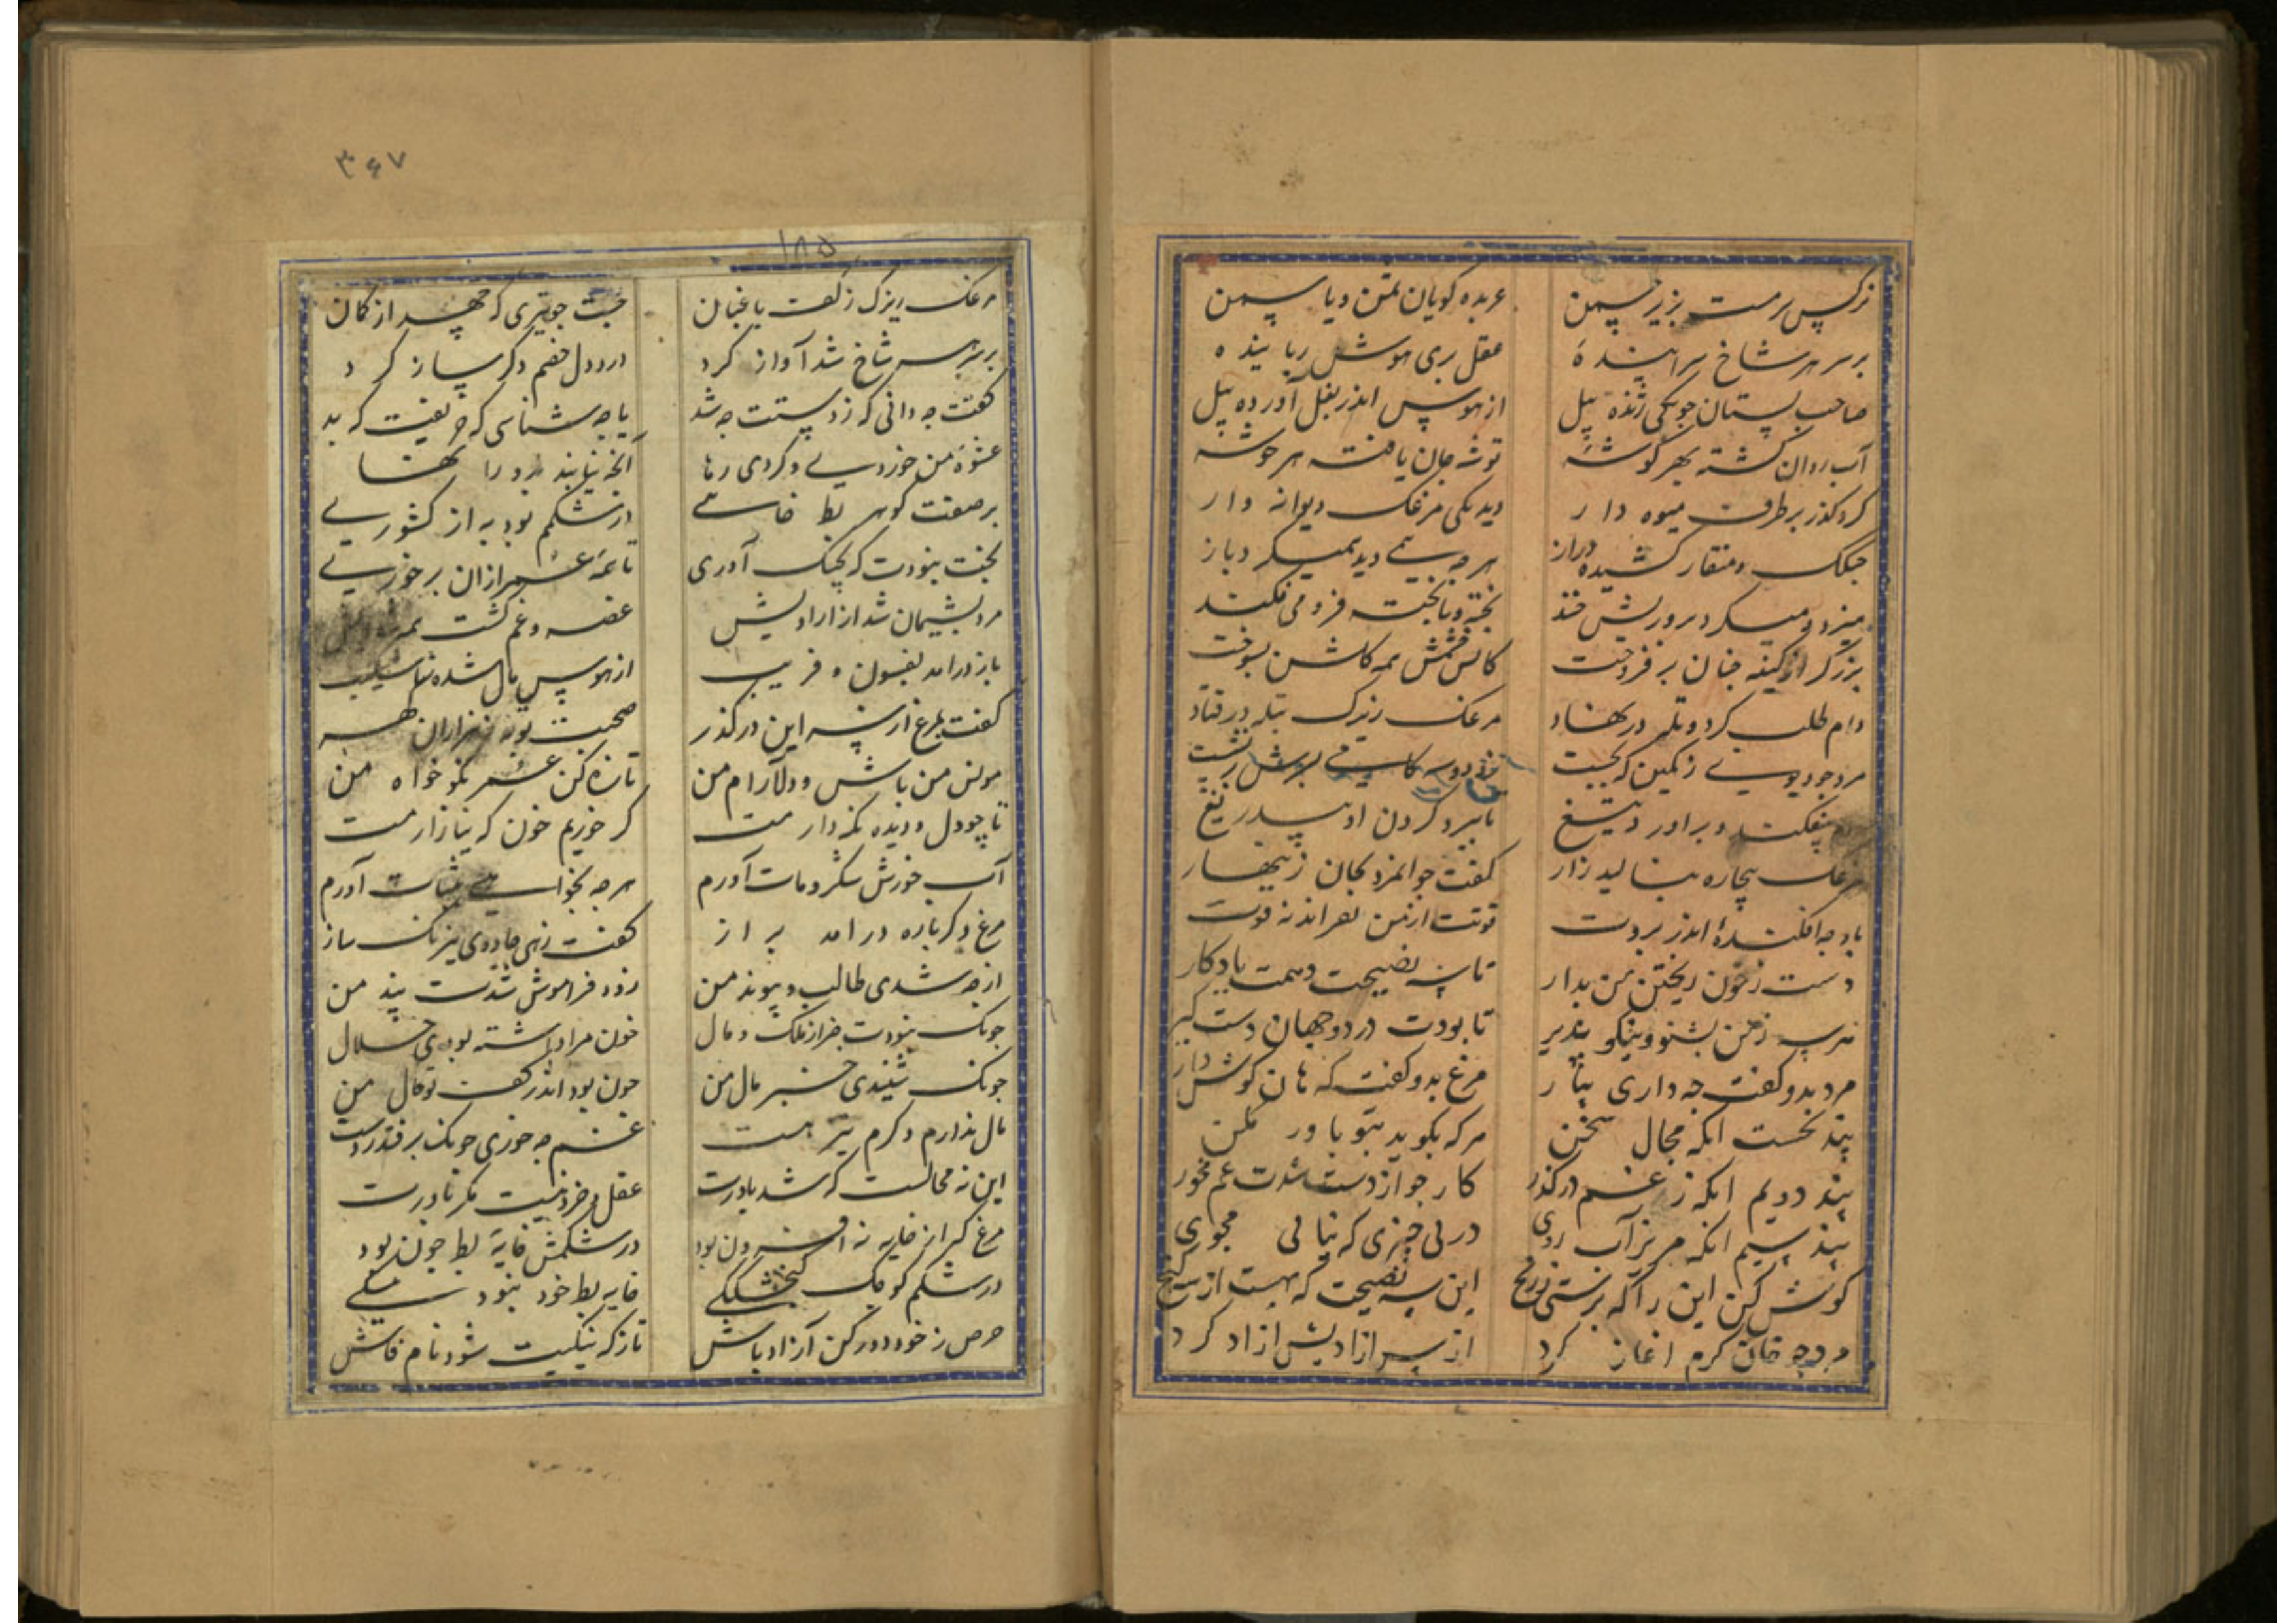 نرکس سرمست بزیر چمن عربده کویان بمن و یاسمن
بر سر هر شاخ سراینده عقل بری هوش رباینده
صاحب بستان جو یکی ژنده پیل از هوس اندر بغل آورده پیل
آب روان کشته بهر کوشه توشه جان یافته هر خوشه
کرد کذر بر طرف میوه دار دید یکی مرغک دیوانه وار
جنکک و منقار کشیده دراز هر جه همی دید همیکرد باز
میزد و میکرد بر و ریش خند بخته و نابخته فرو می فکند
برزکر از کینه جنان بر فروخت کاتش خشمش همه کلشن بسوخت
دام طلب کرد و تله در نهاد مرغک زیرک بتله در فتاد
مرد جو دیوی ز کمین که بجست
بفکند و بر آورد تیغ تا ببرد کردن او بیدریغ
مرغک بیچاره بنالید زار کفت جوانمرد بجان زینهار
باد جه افکنده اندر بروت قوتت از من نه و اندر نه قوت
دست ز خون ریختن من بدار تا سه نصیحت دهمت یادکار
هر سه ز من بشنو و نیکو بذیر تا بودت در دو جهان دست کیر
مرد بدو کفت جه داری بیار مرغ بدو کفت که هان کوش دار
بند نخست انکه محال سخن هر که بکوید بتو باور مکن
بند دویم انکه ز غم در کذر کار جو از دست شدت غم مخور
بند سیم انکه مریز آب روی در بی چیزی که نیابی مجوی
کوش کن این را که برستی ز رنج این سه نصیحت که بهست از سه کنج
مرد جه جان کرم اغاز کرد از سر ازادیش ازاد کرد
۳۶۷
۱۸۵
مرغک زیرک ز کف باغبان جست جو تیری که جهد از کمان
بر سر شاخ شد آواز کرد درد دل خصم دکر ساز کرد
کفت جه دانی که ز دستت جه شد یا جه شناسی که حریفیت که بد
عشوه من خوردی و کردی رها آنجه نیابند مرو را بها
بر صفت کوهر بط خایه در شکمم بود به از کشوری
بخت نبودت که بچنک آوری تا همه عمر از ان بر خوری
مرد بشیمان شد از ازادیش غصه و غم کشت همه
باز درامد بفسون و فریب از هوس مال شده ناشکیب
کفت بمرغ از سر این در کذر صحبت تو به ز هزاران کهر
مونس من باش و دلارام من تازه کن عمر نکو خواه من
تا چو دل و دیده نکه دارمت کر خوریم خون که نیازارمت
آب خورش شکر و مات آورم هر جه بخواهی بثبات آورم
مرغ دکر باره درامد براز کفت زهی جادوی نیرنک ساز
از جه شدی طالب و پیوند من زود فراموش شدت پند من
جونک نبودت جز از ملک و مال خون مرا داشته بودی حلال
جونک شنیدی خبر مال من جون بود اندر کف تو حال من
مال ندارم و کرم نیز هست غم جه خوری جونک بر فتدر دست
این نه محالست که شد باورت عقل و خرد نیست مکر یاورت
مرغ کر از خایه نه افزون بود در شکمش خایه بط جون بود
در شکم کوچک کنجشککی خایه بط خود نبود بی شکی
حرص ز خود دور کن آزاد باش تا ز که نیکیت شود نام فاش